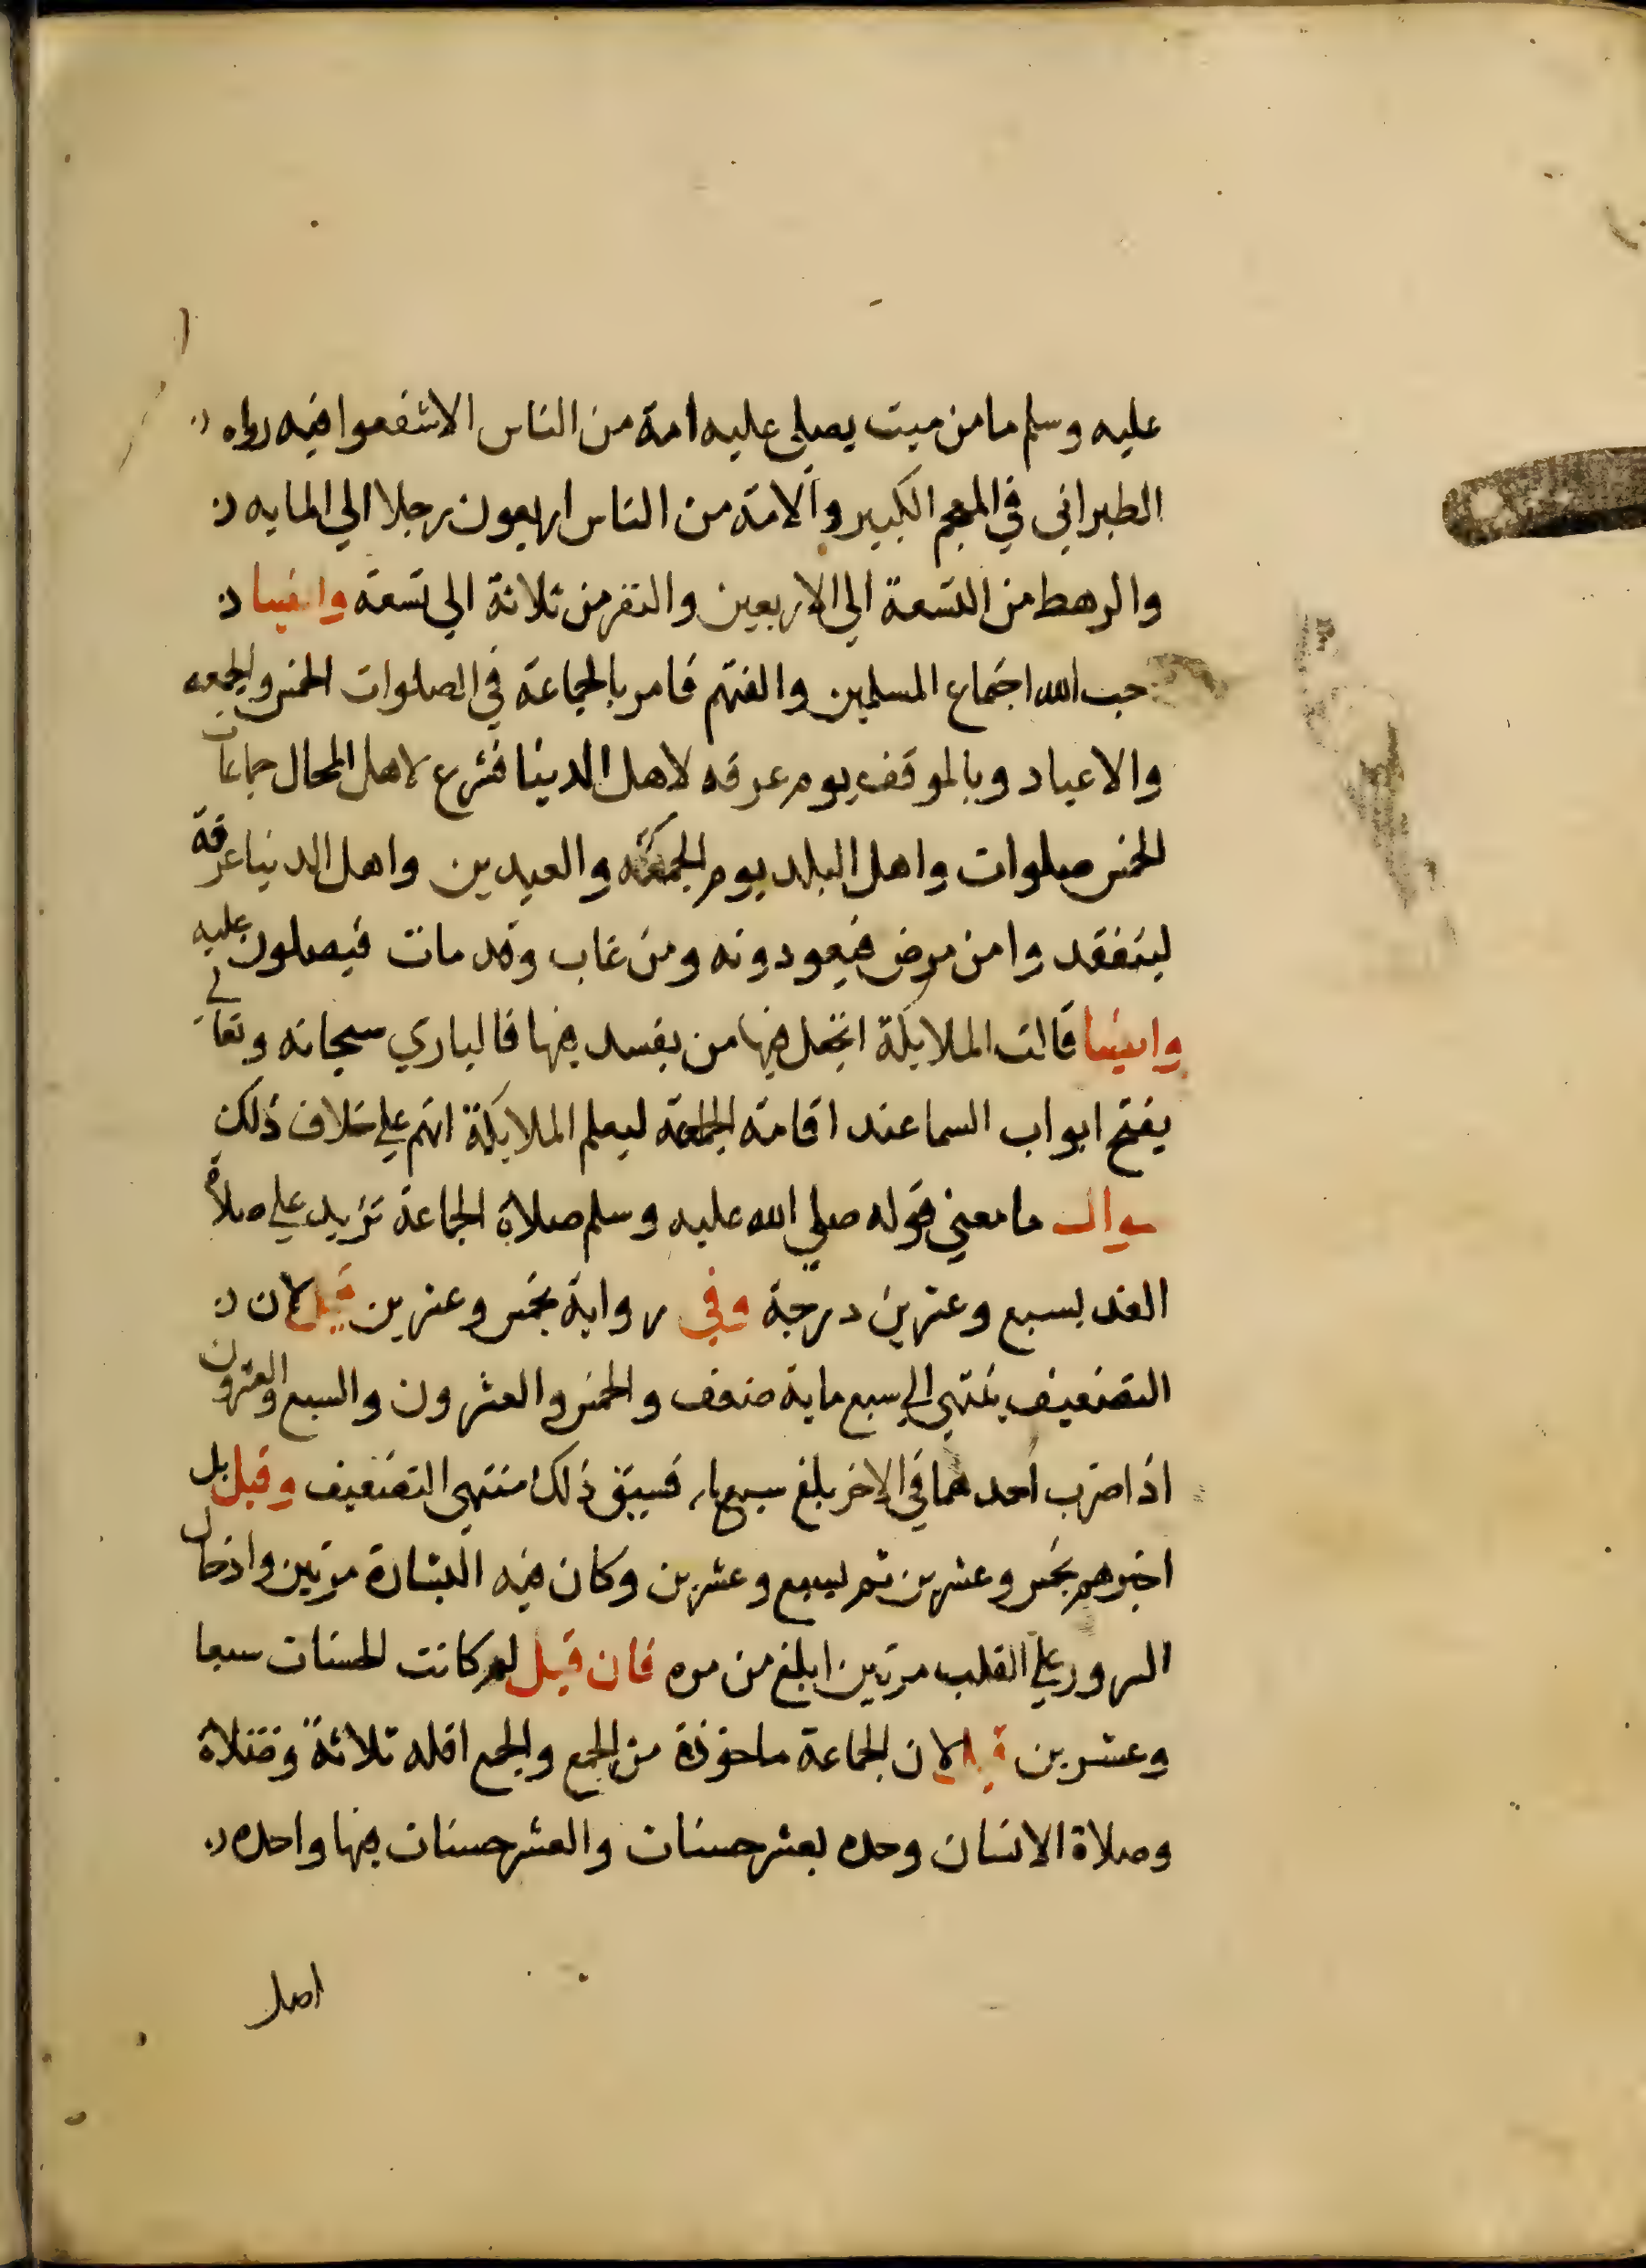 عليه وسلم ما من ميت يصلي عليه امة من الناس الا شفعوا فيه رواه
الطبراني في المعجم الكبير والامة من الناس اربعون رجلا الي المايه
والرهط من التسعة الي الاربعين والنفر من ثلاثة الي تسعة وايضا
حب الله اجتماع المسلمين والفتهم فامر بالجماعة في الصلوات الخمس والجمعه
والاعياد وبالموقف يوم عرفه لاهل الدينا فشرع لاهل المحال جماعات
الخمس صلوات واهل البلد يوم الجمعة والعيدين واهل الدينا عرفة
ليتفقدوا من مرض فيعودونه ومن غاب وقد مات فيصلون عليه
وايضا قالت الملايكة اتجعل فيها من يفسد فيها فالباري سبحانه وتعالي
يفتح ابواب السما عند اقامة الجماعة ليعلم الملايكة انهم علي خلاف ذلك
سوال ما معني قوله صلي الله عليه وسلم صلاة الجماعة تزيد علي صلاة
الفذ بسبع وعشرين درجة وفي رواية بخمس وعشرين قيل لان
التضعيف ينتهي الي سبع ماية ضعف والخمس والعشرون والسبع والعشرون
اذا ضرب احدهما في الاخر بلغ سبع ماية فسبق ذلك منتهي التضعيف وقيل بل
اخبرهم بخمس وعشرين ثم بسبع وعشرين وكان فيه البشارة مرتين وادخال
السرور علي القلب مرتين ابلغ من مره فان قيل لم كانت الحسنات سبعا
وعشرين قيل لان الجماعة ماخوذة من الجمع والجمع اقله ثلاثة
وصلاة الانسان وحده بعشر حسنات والعشر حسنات فيها واحده
اصل